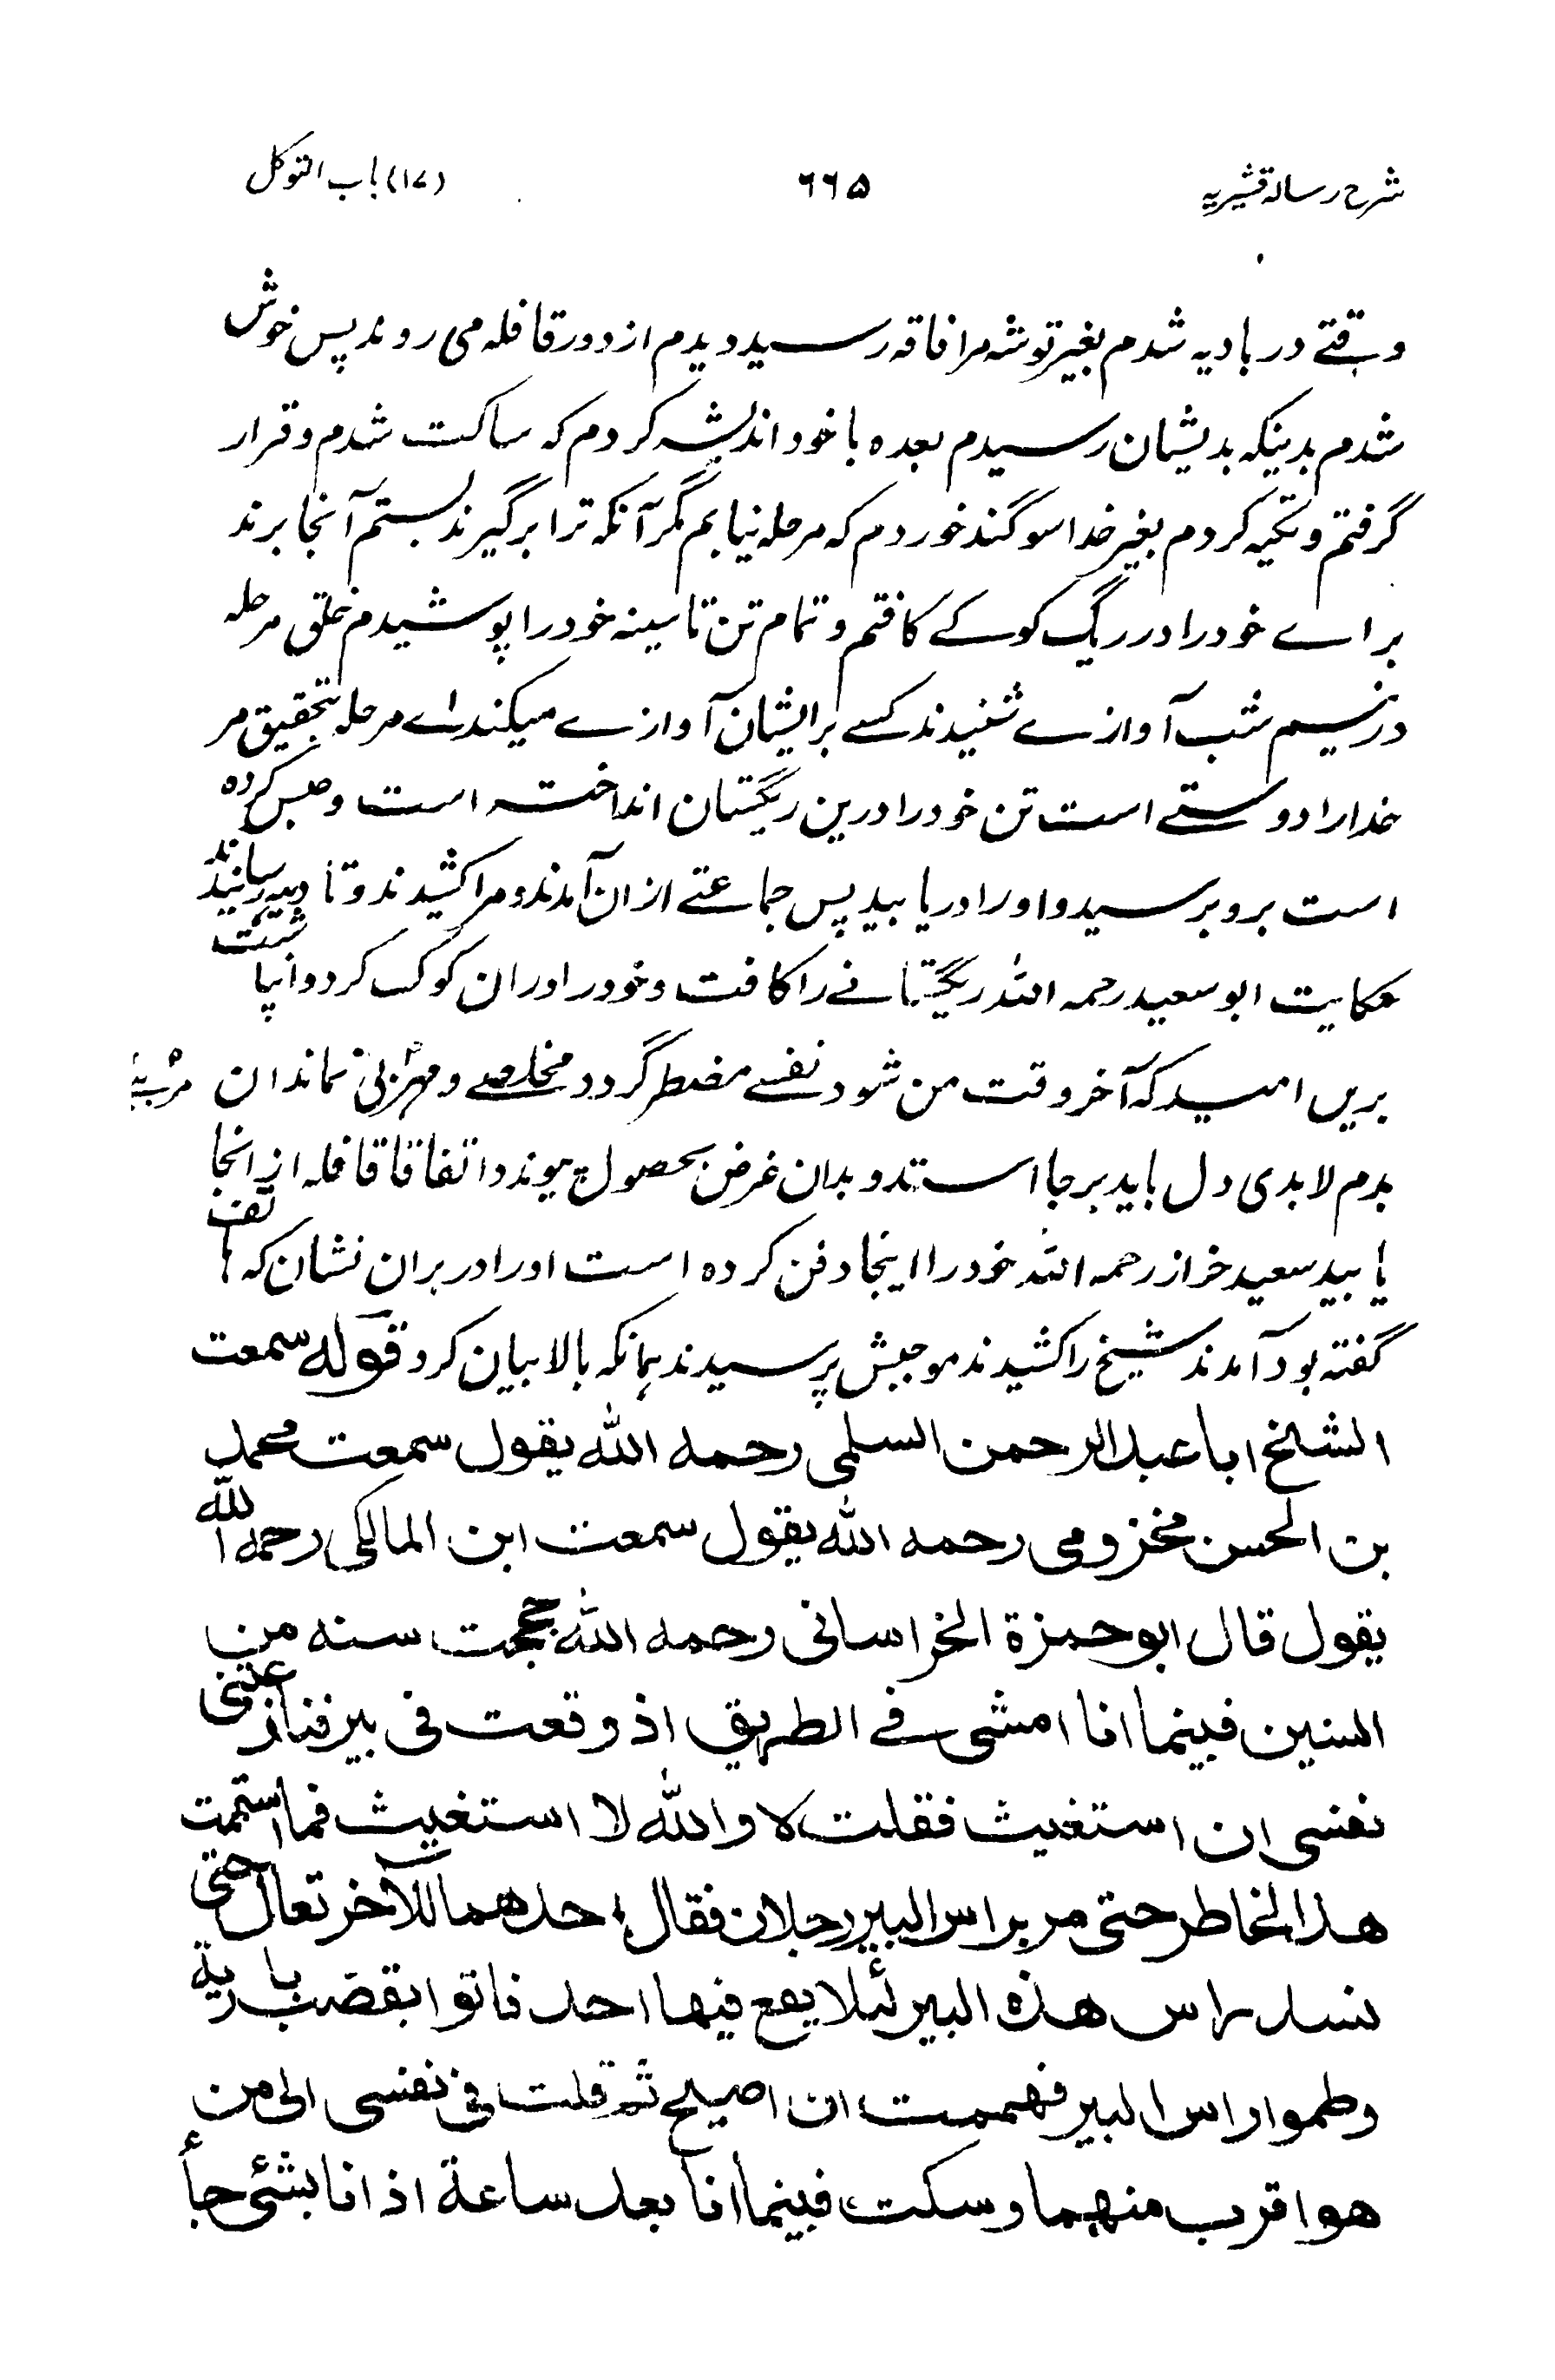 شرح رسالہ قشیریہ
۶۶۵
(۱۷) باب التوکل
وقتے در بادیہ شدم بغیر توشہ مرا فاقہ رسید دیدم از دور قافلہ می روند پس خوش
شدم بدینکہ بدیشان رسیدم بعدہ با خود اندیشہ کردم کہ ساکت شدم و قرار
گرفتم و تکیہ کردم بغیر خدا سوگند خوردم کہ مرحلہ نیایم مگر آنکہ ترا برگیرند بستم آنجا برند
براے خود را در ریگ کوسکے کافتم و تمام تن تا سینہ خود را پوشیدم خلق مرحلہ
در نیم شب آوازے شنیدند کسے برایشان آوازے میکند اے مرحلہ تحقیق مر
خدا را دوستے است تن خود را درین ریگستان انداختہ است و حبس کردہ
است برو برسید و او را دریابید پس جماعتے ازان آمدند و مرا کشیدند و تا دیہ رسانیدند
حکایت ابو سعید رحمہ اللہ ریگستانے را کافت و خود را دران کوک کرد و انپاشت
بریں امید کہ آخر وقت من شود نفسے مضطر گردد مخلصے و مهربی نماند ان مرتبہ
بدم لابدی دل باید برجا استد و بدان غرض بحصول پیوندد اتفاقا قافلہ از انجا
یابید سعید خراز رحمہ اللہ خود را اینجا دفن کردہ است او را در بران نشان کہ ہاتف
گفتہ بود آمدند شیخ را کشیدند موجبش پرسیدند ہمانکہ بالا بیان کرد قولہ سمعت
الشیخ ابا عبد الرحمن السلمی رحمہ اللہ یقول سمعت محمد
بن الحسن مخزومی رحمہ اللہ یقول سمعت ابن المالکی رحمہ اللہ
یقول قال ابو حمزة الخراسانی رحمہ اللہ حججت سنہ من
السنین فبینما انا امشی فے الطریق اذ وقعت فی بیر فنازعتنی
نفسی ان استغیث فقلت لا واللہ لا استغیث فما استتمت
هذا الخاطر حتی مر براس البیر رجلان فقال احدهما للآخر تعال حتی
نسد راس هذہ البیر لئلا یقع فیها احد فاتوا بقصب باریة
وطموا راس البیر فهممت ان اصیح ثم قلت فی نفسی الی من
هو اقرب منهما وسکت فبینما انا بعد ساعة اذ انا بشئی جاء